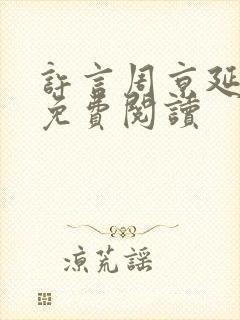 許言周京延
免費閱讀
涼荒謠